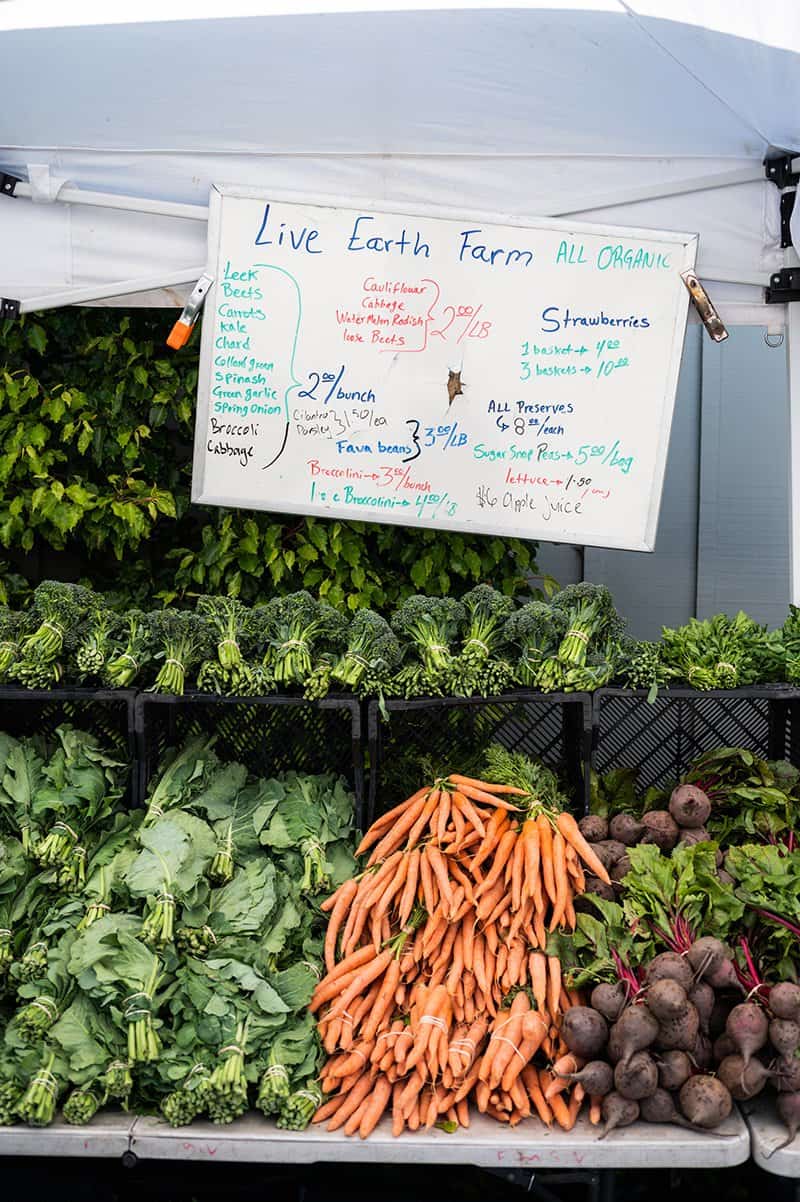 Live Earth Farm ALL ORGANIC
Leek
Beets
Carrots
Kale
Chard
Collard green
Spinash
Green garlic
Spring Onion
Broccoli
Cabbage
2⁰⁰/bunch
Cauliflower
Cabbage
WaterMelon Radish
loose Beets
2⁰⁰/LB
Cilantro
Parsley
1⁵⁰/ea
Fava beans 3⁰⁰/LB
Broccolini→3⁵⁰/bunch
Broccolini→4⁰⁰/lB
Strawberries
1 basket→4⁰⁰
3 baskets→10⁰⁰
ALL PRESERVES
↳8⁰⁰/each
Sugar Snap Peas→5⁰⁰/bag
lettuce→1.50
$6 Apple juice